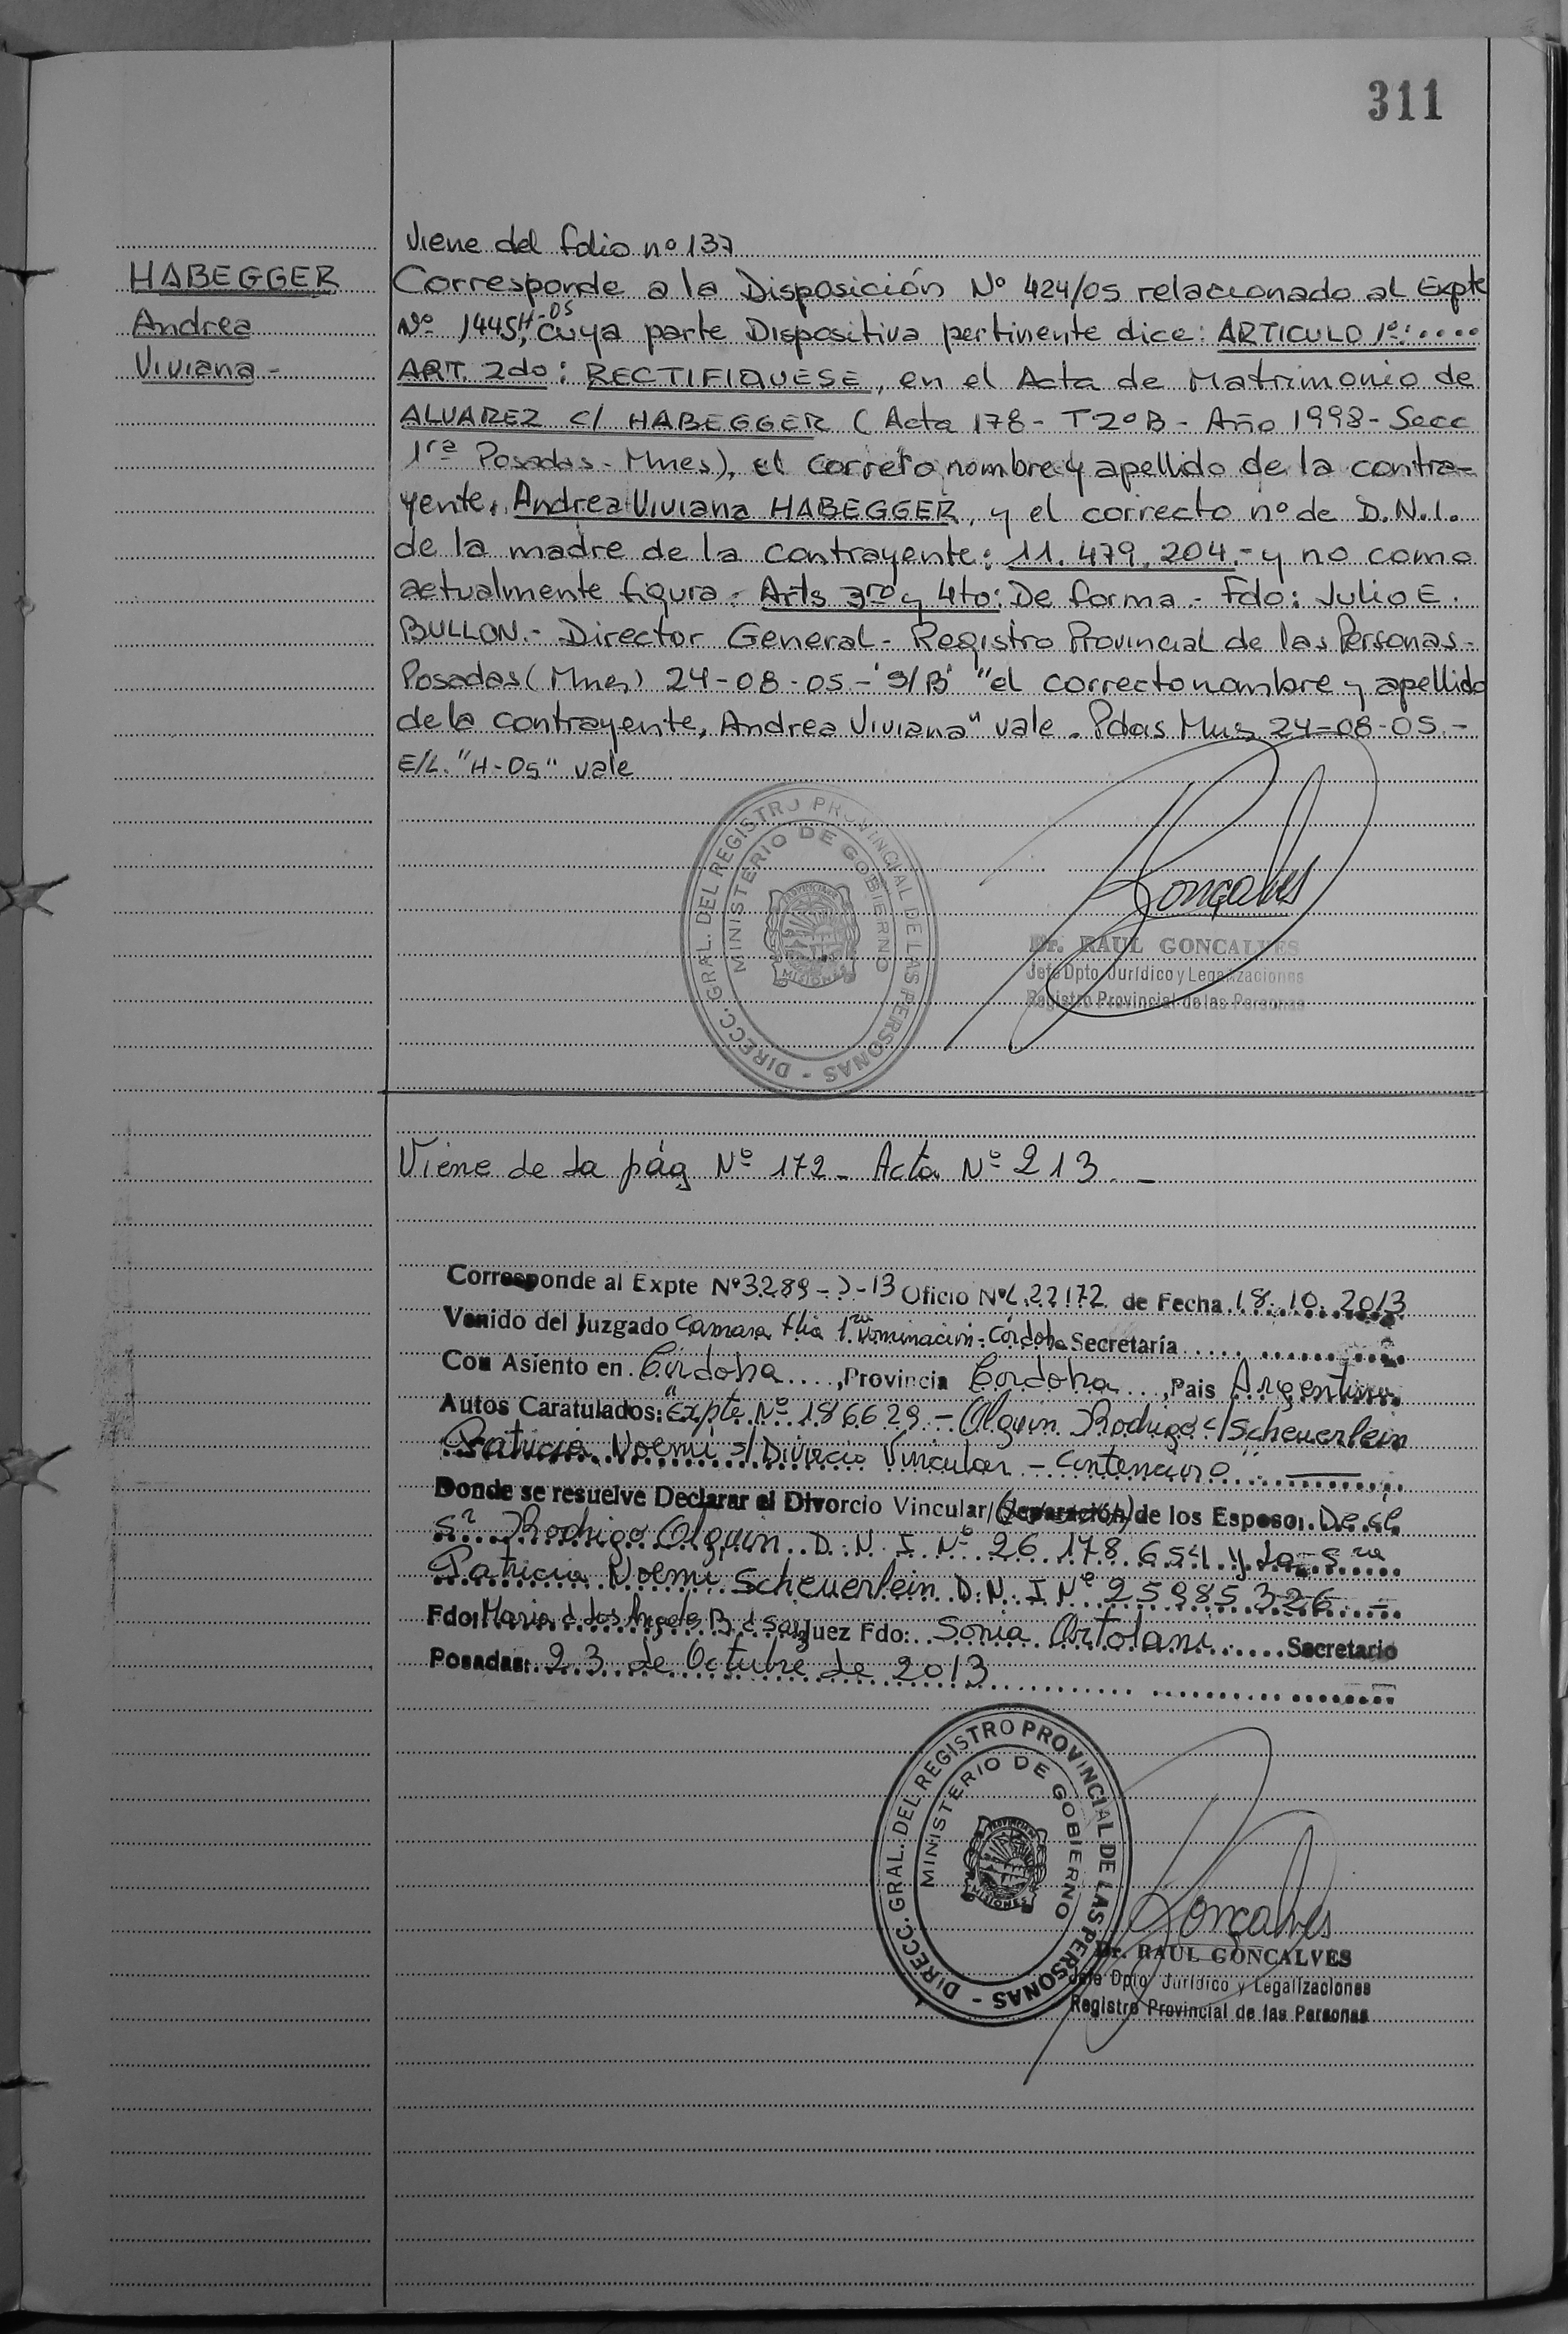 311
Viene del folio nº 137
HABEGGER
Andrea
Viviana -
Corresponde a la Disposición Nº 424/05 relacionado al Expte
Nº 1445, H-05 cuya parte Dispositiva pertinente dice: ARTICULO 1º: ....
ART. 2do: RECTIFIQUESE, en el Acta de Matrimonio de
ALVAREZ C/ HABEGGER (Acta 178 - Tº 2º B - Año 1998 - Secc
1ra Posadas - Mnes), el correto nombre y apellido de la contra-
yente, Andrea Viviana HABEGGER, y el correcto nº de D.N.I.
de la madre de la contrayente: 11.479.204.- y no como
actualmente figura. Arts 3ro y 4to: De forma - Fdo: Julio E.
BULLON.- Director General - Registro Provincial de las Personas -
Posadas (Mnes) 24-08-05.- "S/B" "el correcto nombre y apellido
de la contrayente, Andrea Viviana" vale. Pdas Mns 24-08-05.-
E/L. "H-05" vale
DIRECC. GRAL. DEL REGISTRO PROVINCIAL DE LAS PERSONAS -
MINISTERIO DE GOBIERNO
MISIONES
Gonçalves
Dr. RAUL GONCALVES
Jefe Dpto Jurídico y Legalizaciones
Registro Provincial de las Personas
Viene de la pág Nº 172 - Acta Nº 213. -
Corresponde al Expte Nº 3289 - - 13 Oficio Nº 22172 de Fecha 18.10.2013
Venido del Juzgado Camara flia 1ra Nominación - Córdoba Secretaría .....
Con Asiento en Córdoba ...., Provincia Cordoba ..., Pais Argentina
Autos Caratulados: "Expte Nº 186629 - Olguin Rodrigo c/ Scheuerlein
Patricia Noemí s/ Divorcio Vincular - Contencioso"
Donde se resuelve Declarar el Divorcio Vincular/(Separación) de los Esposos. De el
Sr Rodrigo Olguin D.N.I Nº 26.178.654 y la Sra
Patricia Noemi Scheuerlein D.N.I Nº 25985326 -
Fdo: Maria d los Angeles B d Juez Fdo: Sonia Ortolani ..... Secretario
Posadas: 23 de Octubre de 2013
DIRECC. GRAL. DEL REGISTRO PROVINCIAL DE LAS PERSONAS -
MINISTERIO DE GOBIERNO
PROVINCIA DE
MISIONES
Gonçalves
Dr. RAUL GONCALVES
Jefe Dpto Jurídico y Legalizaciones
Registro Provincial de las Personas